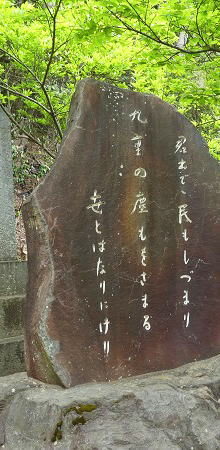 君出で民もしづまり
九重の塵もをさまる
世とはなりにけり